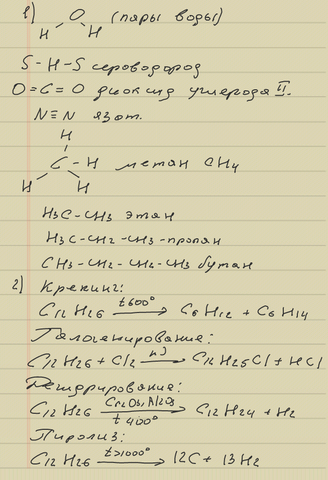 1) H O H (пары воды)
S-H-S сероводород
O=C=O диоксид углерода II.
N≡N азот.
H
C-H метан CH4
H H
H3C-CH3 этан
H3C-CH2-CH3-пропан
CH3-CH2-CH2-CH3 бутан
2) Крекинг:
C12H26 t600° → C6H12 + C6H14
Галогенирование:
C12H26 + Cl2 hν → C12H25Cl + HCl
Дегидрирование:
C12H26 Cr2O3, Al2O3 t 400° → C12H24 + H2
Пиролиз:
C12H26 t>1000° → 12C + 13H2